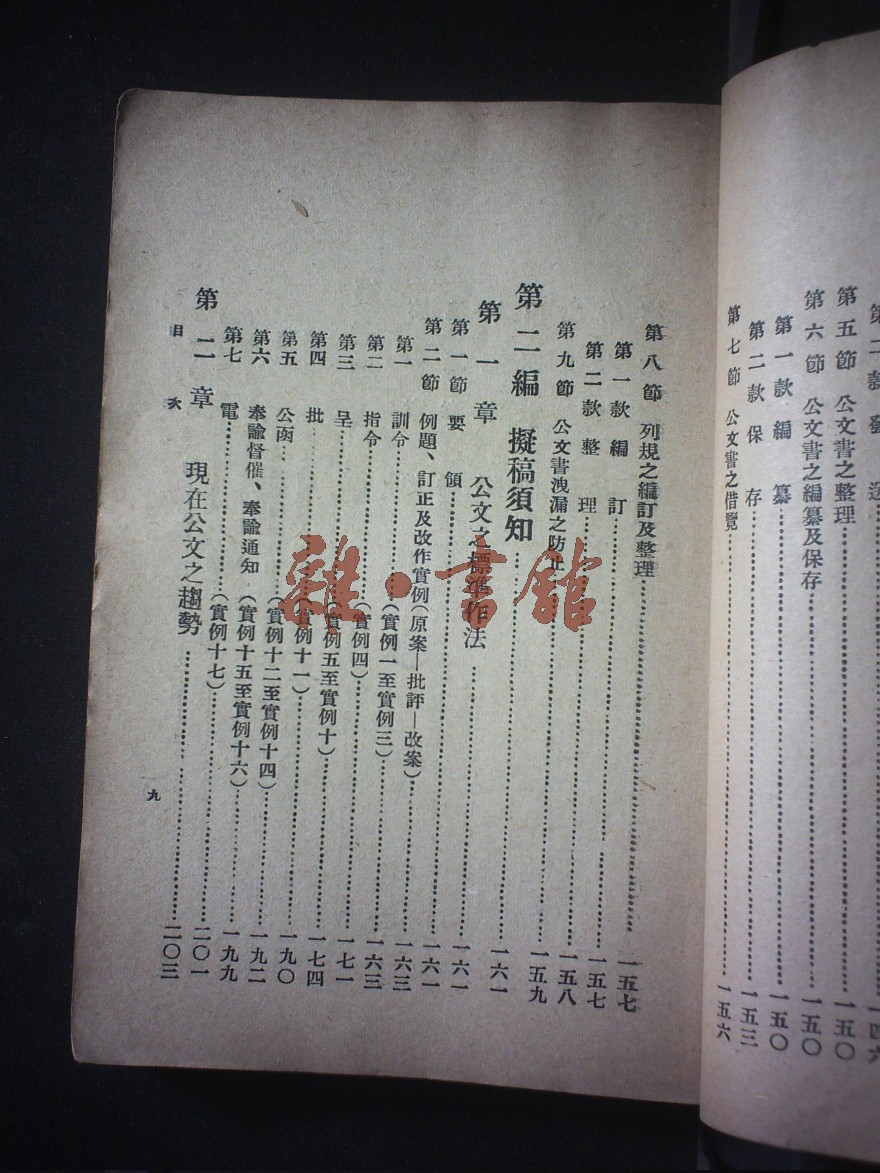 第二款發 送……一四六
第五節 公文書之整理……一五〇
第六節 公文書之編纂及保存……一五〇
第一款編 纂……一五〇
第二款保 存……一五三
第七節 公文書之借覽……一五六
第八節 列規之編訂及整理……一五七
第一款編 訂……一五七
第二款整 理……一五七
第九節 公文書洩漏之防止……一五九
第二編 擬稿須知……一六一
第一章 公文之標準作法……一六一
第一節要 領……一六一
第二節 例題、訂正及改作實例(原案—批評—改案)……一六三
第一 訓令……(實例一至實例三)……一六三
第二 指令……(實例四)……一七一
第三 呈……(實例五至實例十)……一七四
第四 批……(實例十一)……一九〇
第五 公函……(實例十二至實例十四)……一九二
第六 奉諭督催、奉諭通知(實例十五至實例十六)……一九九
第七 電……(實例十七)……二〇一
第二章 現在公文之趨勢……二〇三
目 次
九
雜·書館